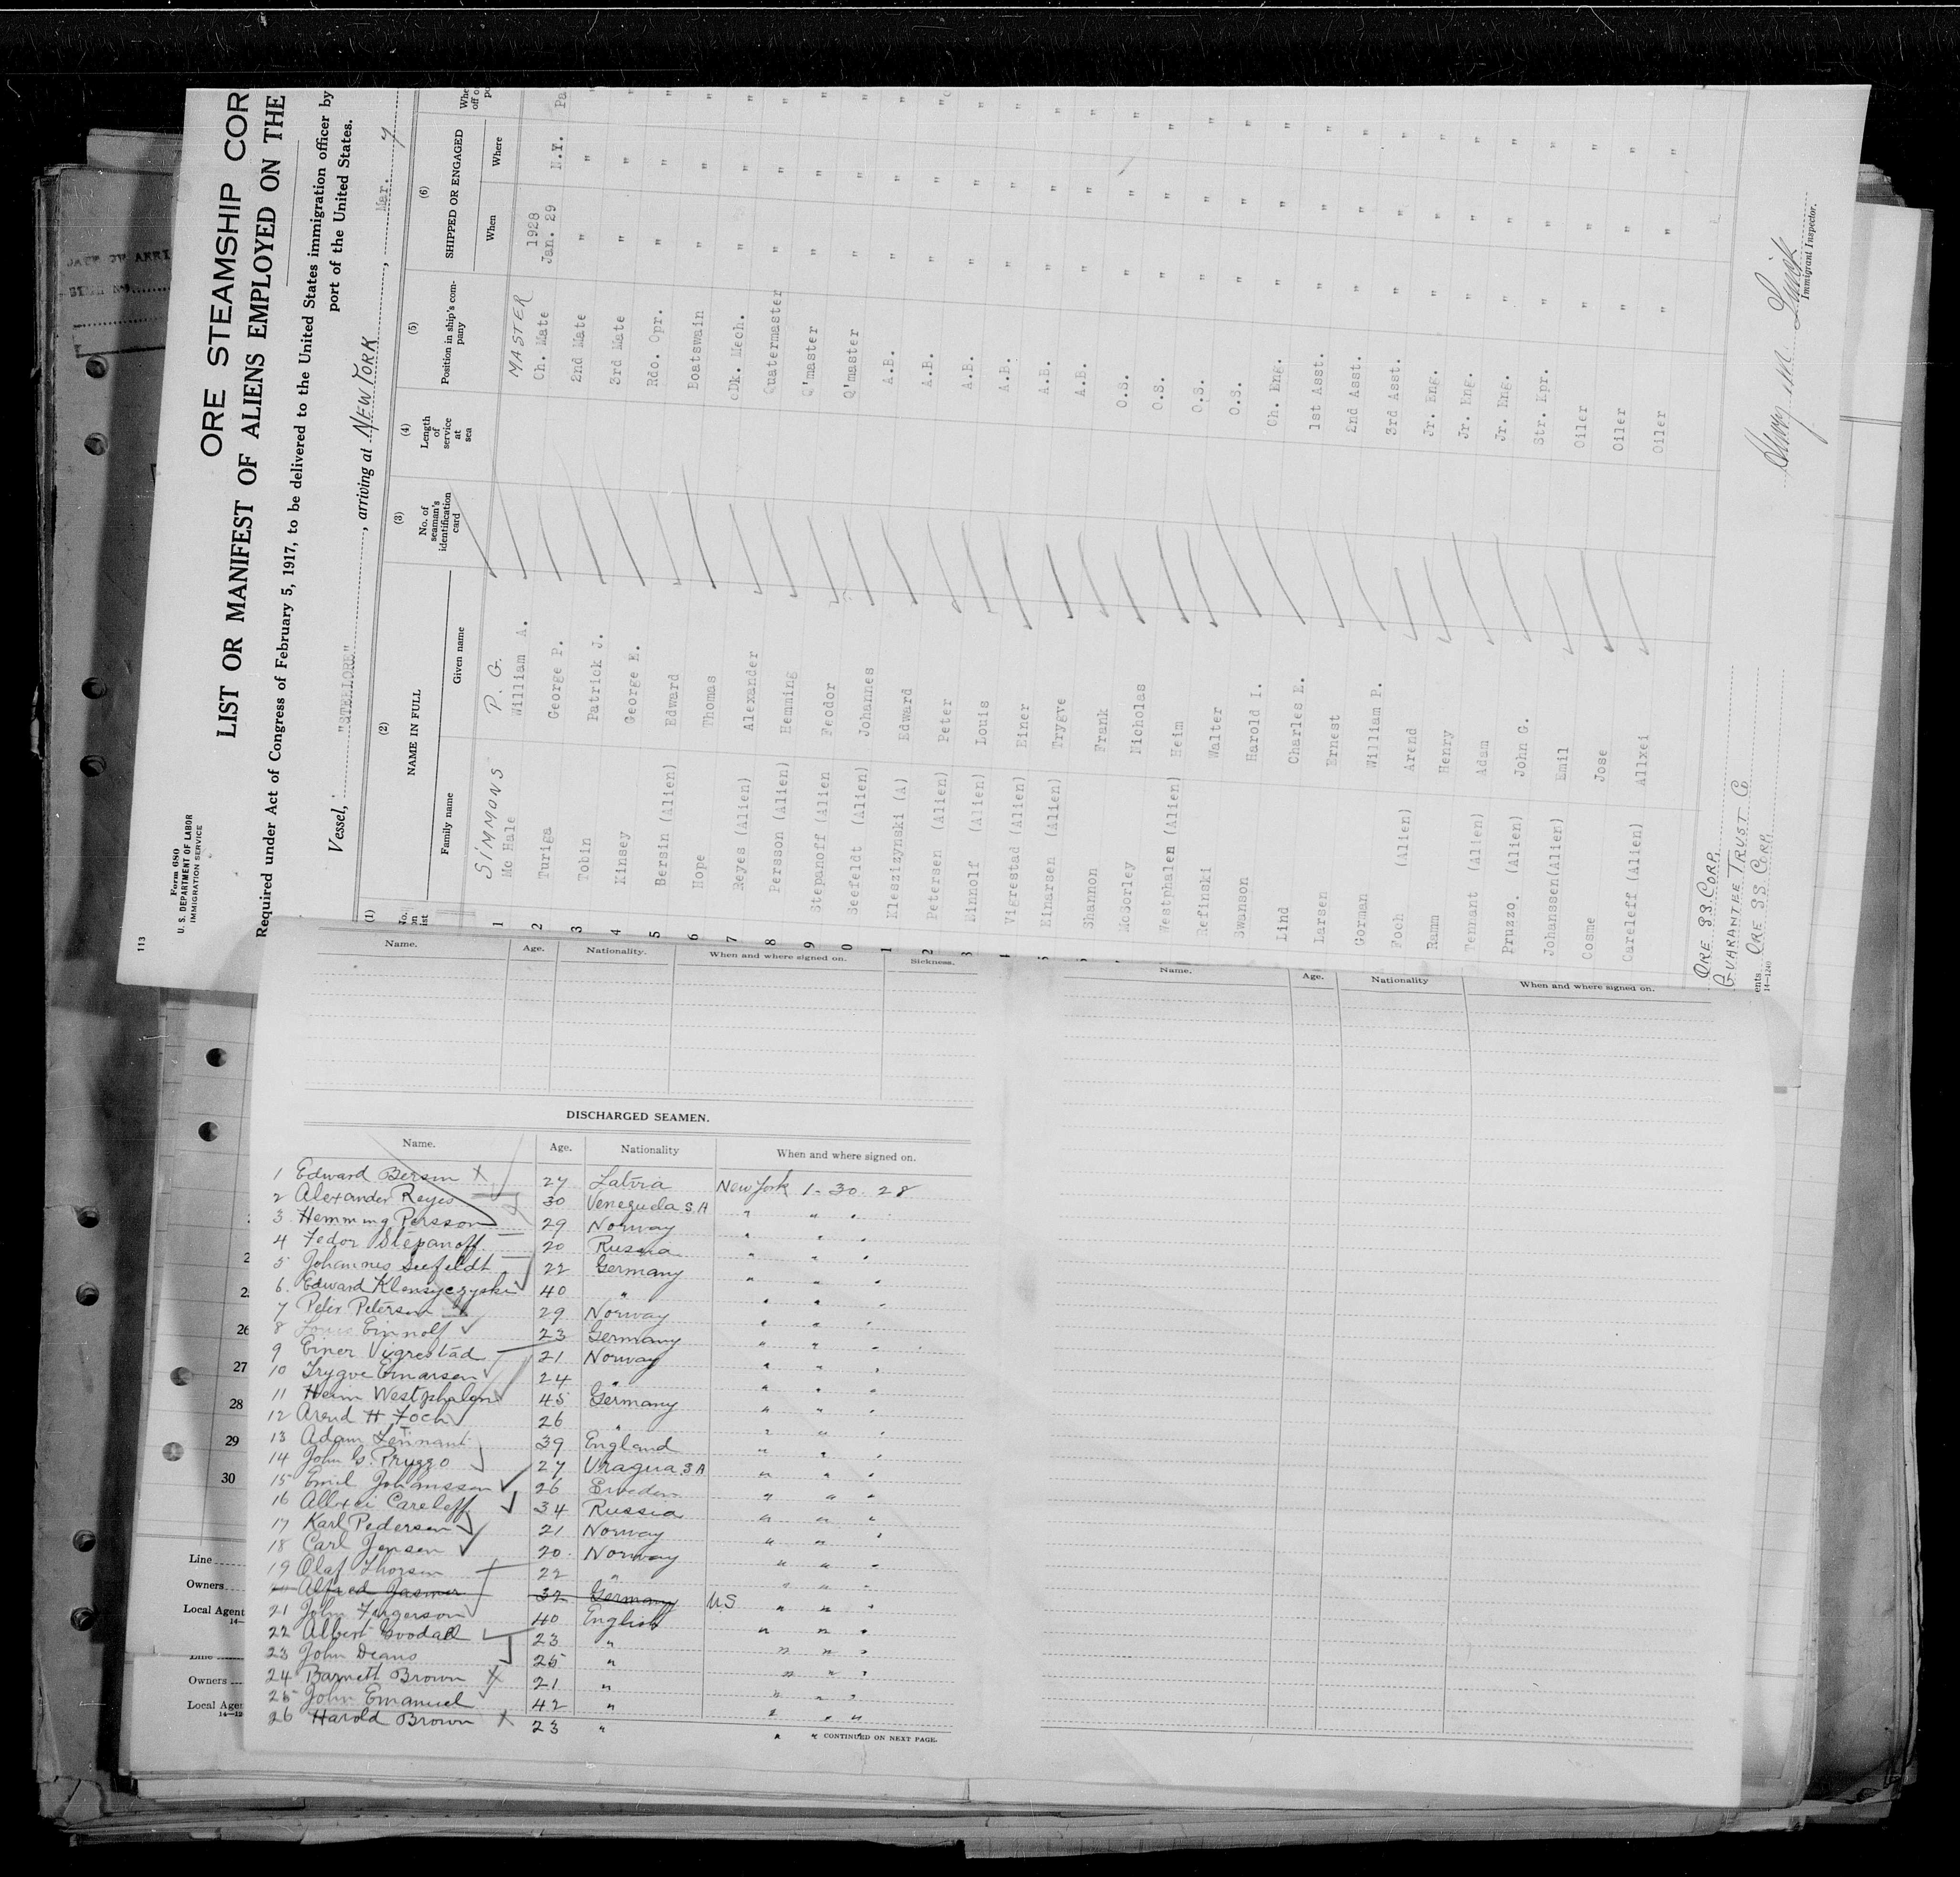 113
Form 680
U. S. DEPARTMENT OF LABOR
IMMIGRATION SERVICE
ORE STEAMSHIP COR
LIST OR MANIFEST OF ALIENS EMPLOYED ON THE
Required under Act of Congress of February 5, 1917, to be delivered to the United States immigration officer by
port of the United States.
Vessel, "STEELORE", arriving at NEW YORK, Mar. 7
(1) (2) (3) (4) (5) (6)
No. on list
NAME IN FULL
Family name Given name
No. of seaman's identification card
Length of service at sea
Position in ship's company
SHIPPED OR ENGAGED
When Where
SIMMONS P. G. MASTER
1 Mc Hale William A. Ch. Mate 1928 Jan. 29 N.Y. Pa
2 Turiga George P. 2nd Mate " " "
3 Tobin Patrick J. 3rd Mate " " "
4 Kinsey George E. Rdo. Opr. " " "
5 Bersin (Alien) Edward Boatswain " " "
6 Hope Thomas Dk. Mech. " " "
7 Reyes (Alien) Alexander Quatermaster " " "
8 Persson (Alien) Hemning Q'master " " "
9 Stepanoff (Alien Feodor Q'master " " "
0 Seefeldt (Alien) Johannes A.B. " " "
1 Kleszizynski (A) Edward A.B. " " "
2 Petersen (Alien) Peter A.B. " " "
3 Einnolf (Alien) Louis A.B. " " "
Vigrestad (Alien) Einer A.B. " " "
Einarsen (Alien) Trygve A.B. " " "
Shannon Frank O.S. " " "
McSorley Nicholas O.S. " " "
Westphalen (Alien) Heim O.S. " " "
efinski Walter O.S. " " "
Swanson Harold I. Ch. Eng. " " "
Lind Charles E. 1st Asst. " " "
Larsen Ernest 2nd Asst. " " "
Gorman William P. 3rd Asst. " " "
Foch (Alien) Arend Jr. Eng. " " "
Ramm Henry Jr. Eng. " " "
Tennant (Alien) Adam Jr. Eng. " " "
Pruzzo. (Alien) John G. Str. Kpr. " " "
Johanssen(Alien) Emil Oiler " " "
Cosme Jose Oiler " " "
Careleff (Alien) Allxei Oiler " " "
ORE SS. CORP.
GUARANTEE TRUST Co
ents ORE SS CORP.
14—1240
Immigrant Inspector.
Name. Age. Nationality. When and where signed on. Sickness.
Name. Age. Nationality When and where signed on.
DISCHARGED SEAMEN.
Name. Age. Nationality When and where signed on.
1 Edward Bersin X 27 Latvia New York 1-30 28
2 Alexander Reyes 30 Venezuela S.A " " "
3 Hemming Persson 29 Norway " " "
4 Fedor Stepanoff 20 Russia " " "
5 Johannes Seefeldt 22 Germany " " "
6 Edward Klensyczyski 40 " " " "
7 Peter Petersen 29 Norway " " "
8 Louis Einnolf 23 Germany " " "
9 Einer Vigrestad 21 Norway " " "
10 Trygve Einarsen 24 " " " "
11 Heim Westphalen 45 Germany " " "
12 Arend H Foch 26 " " " "
13 Adam Tennant 39 England " " "
14 John G. Pruzzo 27 Uragua S A " " "
15 Emil Johanssen 26 Sweden " " "
16 Allxei Careleff 34 Russia " " "
17 Karl Pedersen 21 Norway " " "
18 Carl Jensen 20 Norway " " "
19 Olaf Thorsen 22 " " " "
20 Alfred Jasmer 32 Germany US " " "
21 John Furgerson 40 English " " "
22 Albert Goodall 23 " " " "
23 John Deans 25 " " " "
24 Barnett Brown X 21 " " " "
25 John Emanuel 42 " " " "
26 Harold Brown X 23 " " "
CONTINUED ON NEXT PAGE.
26
27
28
29
30
Line
Owners
Local Agent
14—
Line
Owners
Local Agen
14—12